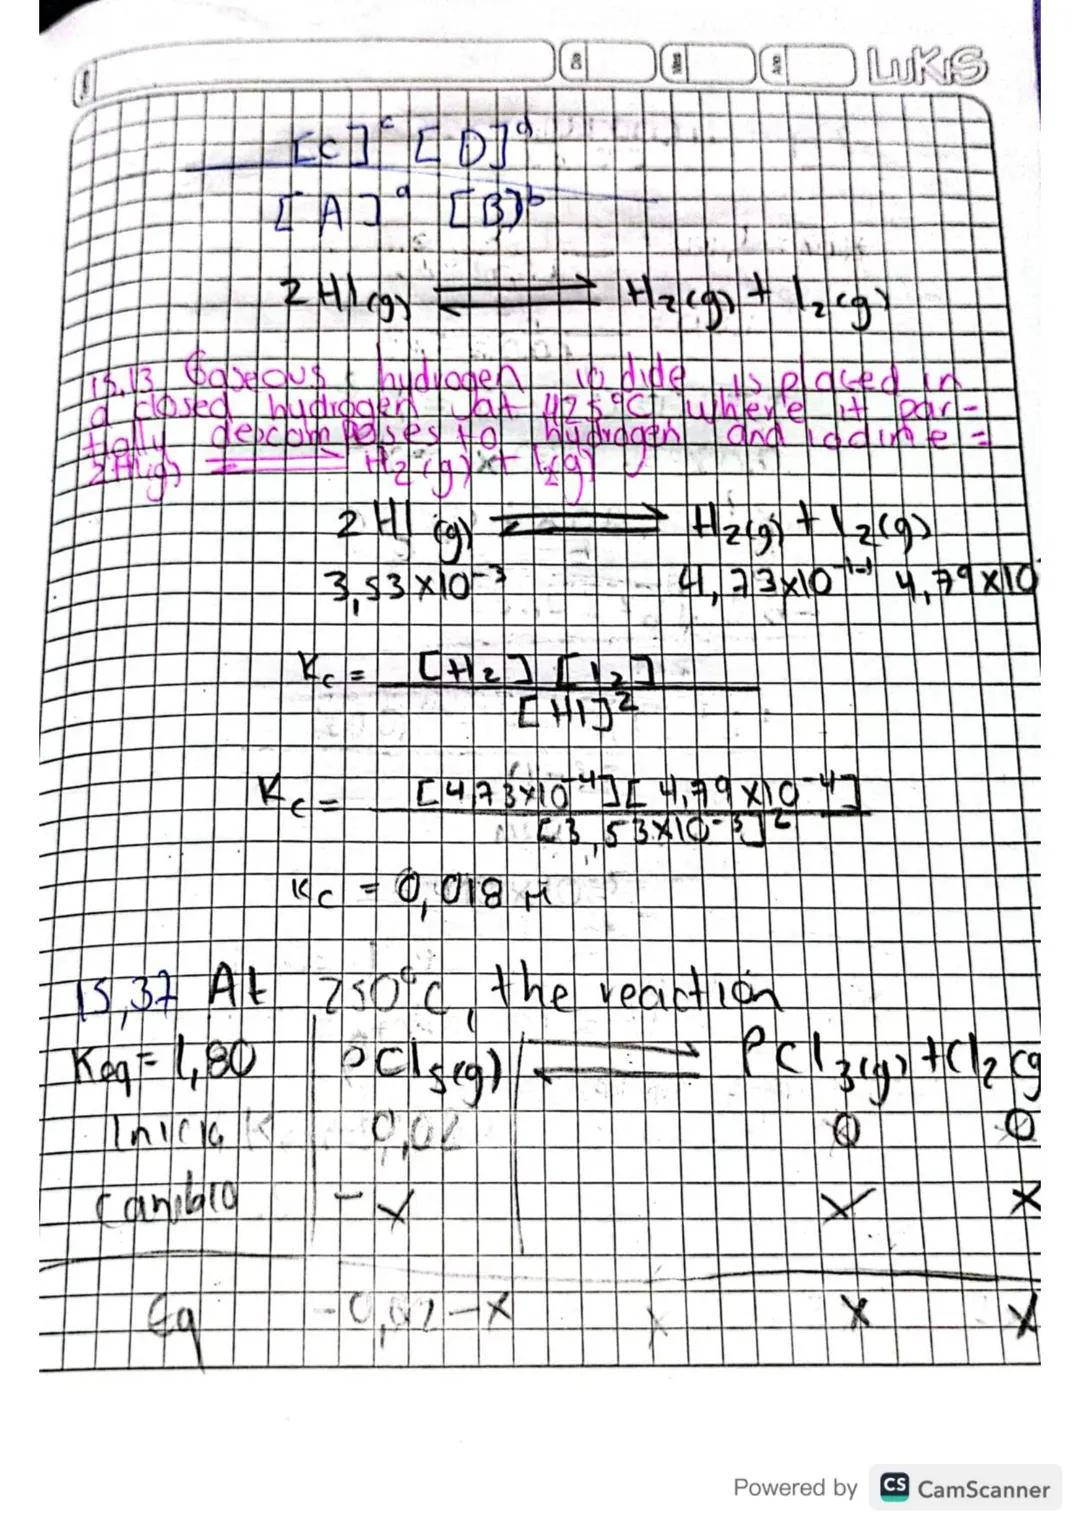 Dia Mes Año LUKIS
[C]^c [D]^d
[A]^a [B]^b
2HI(g) ⇌ H2(g) + I2(g)
15.13 Gaseous hydrogen iodide is placed in
a closed hydrogen at 425°C where it par-
tially descomposes to hydrogen and iodine =
2HI(g) ⇌ H2(g) + I2(g)
2HI(g) ⇌ H2(g) + I2(g)
3,53x10^-3 4,73x10 4,79x10
Kc = [H2] [I2]
[HI]^2
Kc = [4,73x10^-4][4,79x10^-4]
[3,53x10^-3]^2
Kc = 0,018 M
15,37 At 250°C, the reaction
Keq = 1,80 PCl5(g) ⇌ PCl3(g) + Cl2(g
Inicia 0,02 0 0
Cambio -x x x
Eq -0,02-x x x